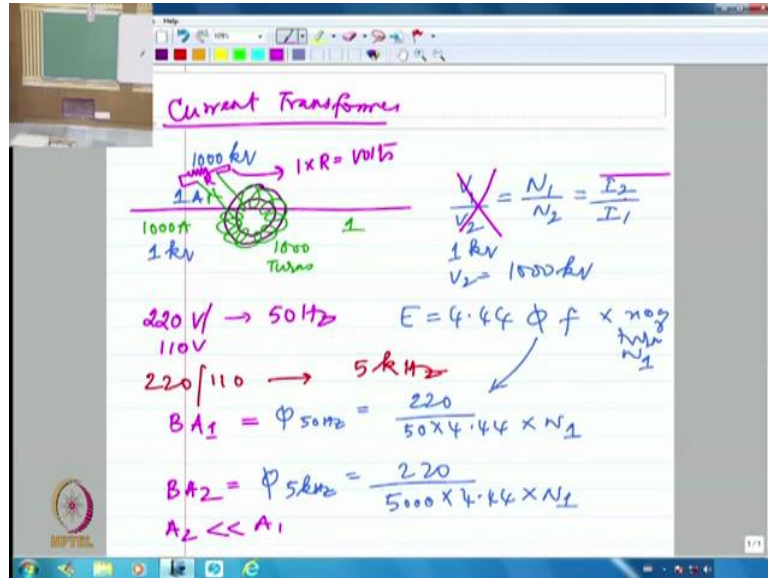 Help
Current Transformer
1000 kV
1 x R = Volts
R
1 A
1000A
1 kV
1000
Turns
1
V1/V2 = N1/N2 = I2/I1
1 kV
V2 = 1000 kV
220 V/ → 50 Hz
110V
E = 4.44 φ f x no of
turn
N1
220/110 → 5 kHz
BA1 = φ50Hz = 220 / 50 x 4.44 x N1
BA2 = φ5kHz = 220 / 5000 x 4.44 x N1
A2 << A1
NPTEL
1/1